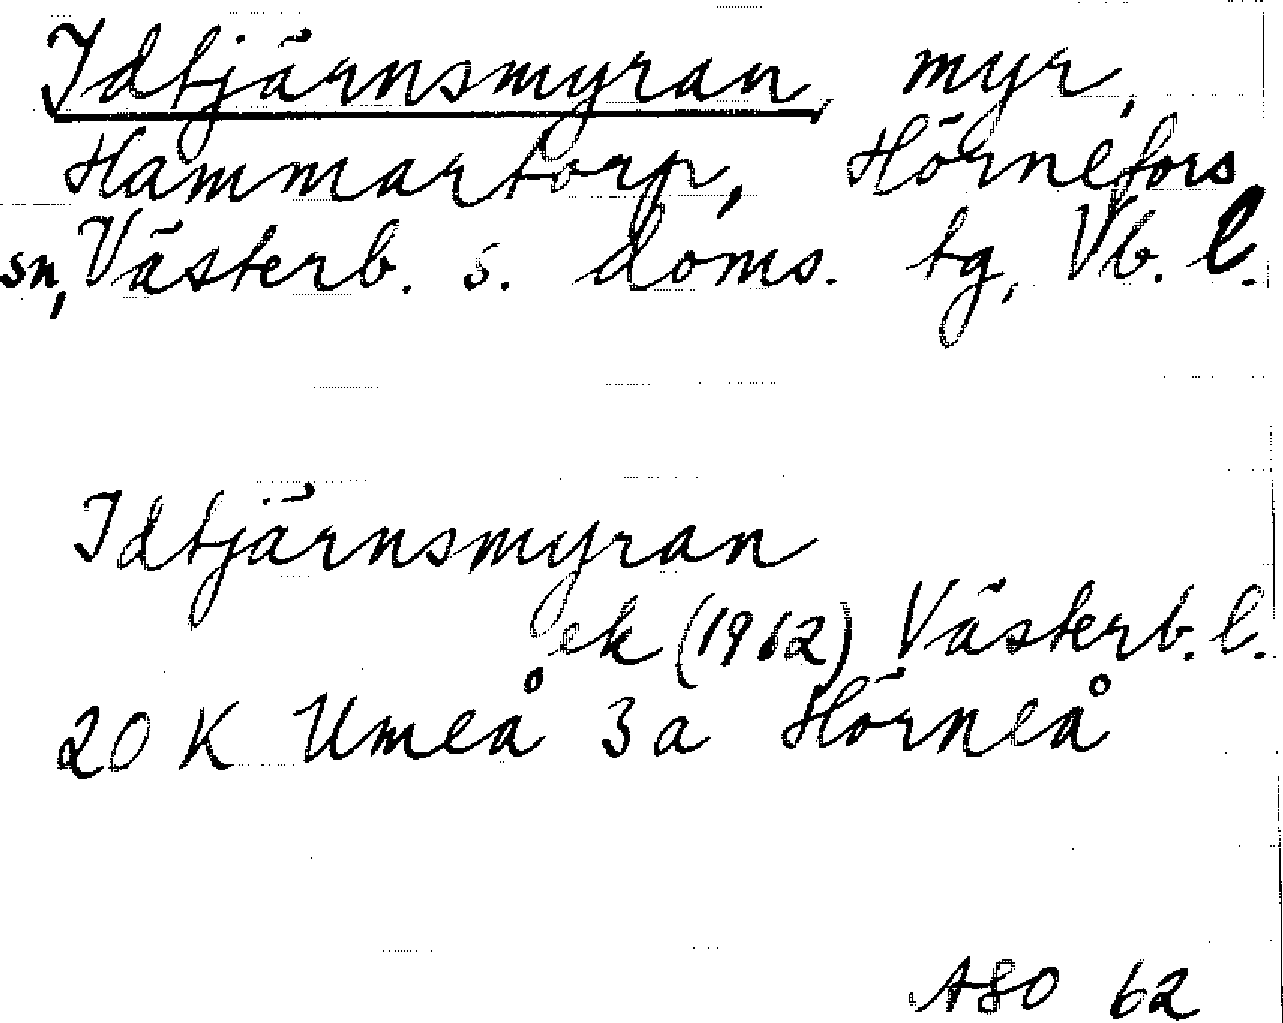 Idtjärnsmyran, myr,
Hammartorp, Hörnefors
sn, Västerb. s. doms. tg, Vb. l.
Idtjärnsmyran
ek (1962) Västerb. l.
20 K Umeå 3 a Hörneå
ASO 62